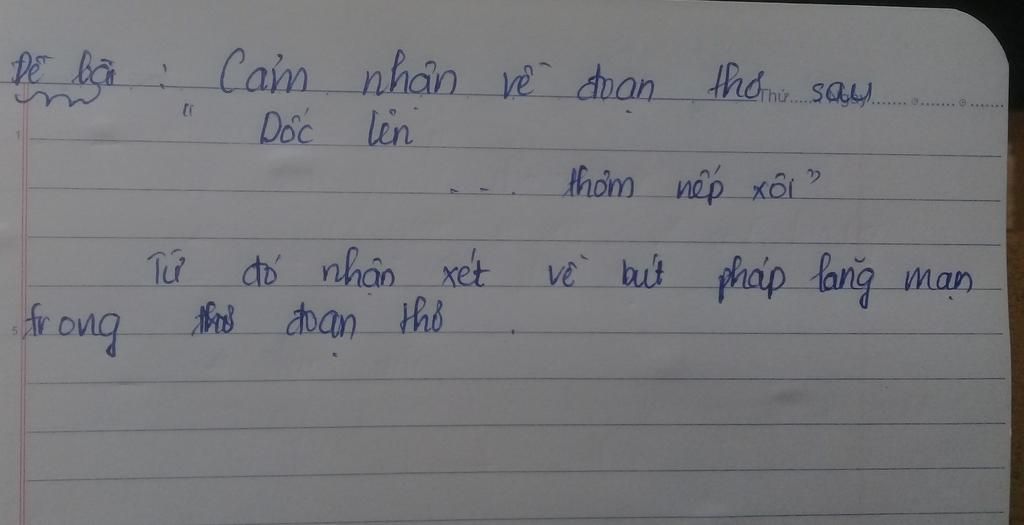 Đề bài : Cảm nhận về đoạn thơ sau
" Dốc lên
... thơm nếp xôi"
Từ đó nhận xét về bút pháp lãng mạn
trong đoạn thơ .